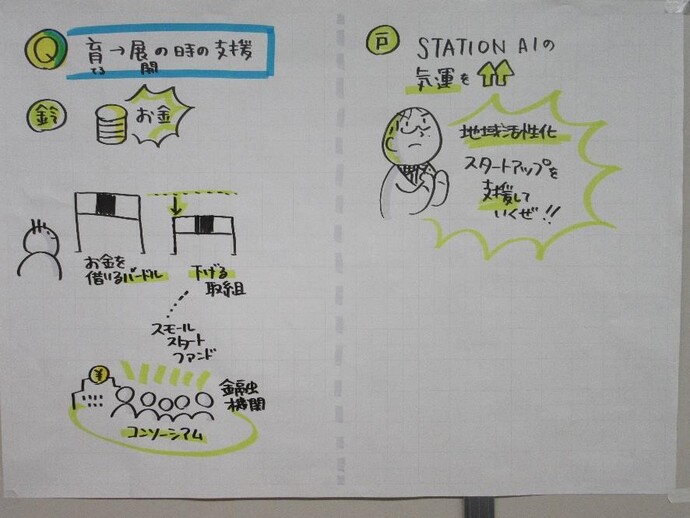 Q 育→展の時の支援
てる 開
鈴 お金
お金を
借りるハードル
下げる
取組
スモール
スタート
ファンド
¥
金融
機関
コンソーシアム
戸 STATION AIの
気運を
地域活性化
スタートアップを
支援して
いくぜ!!